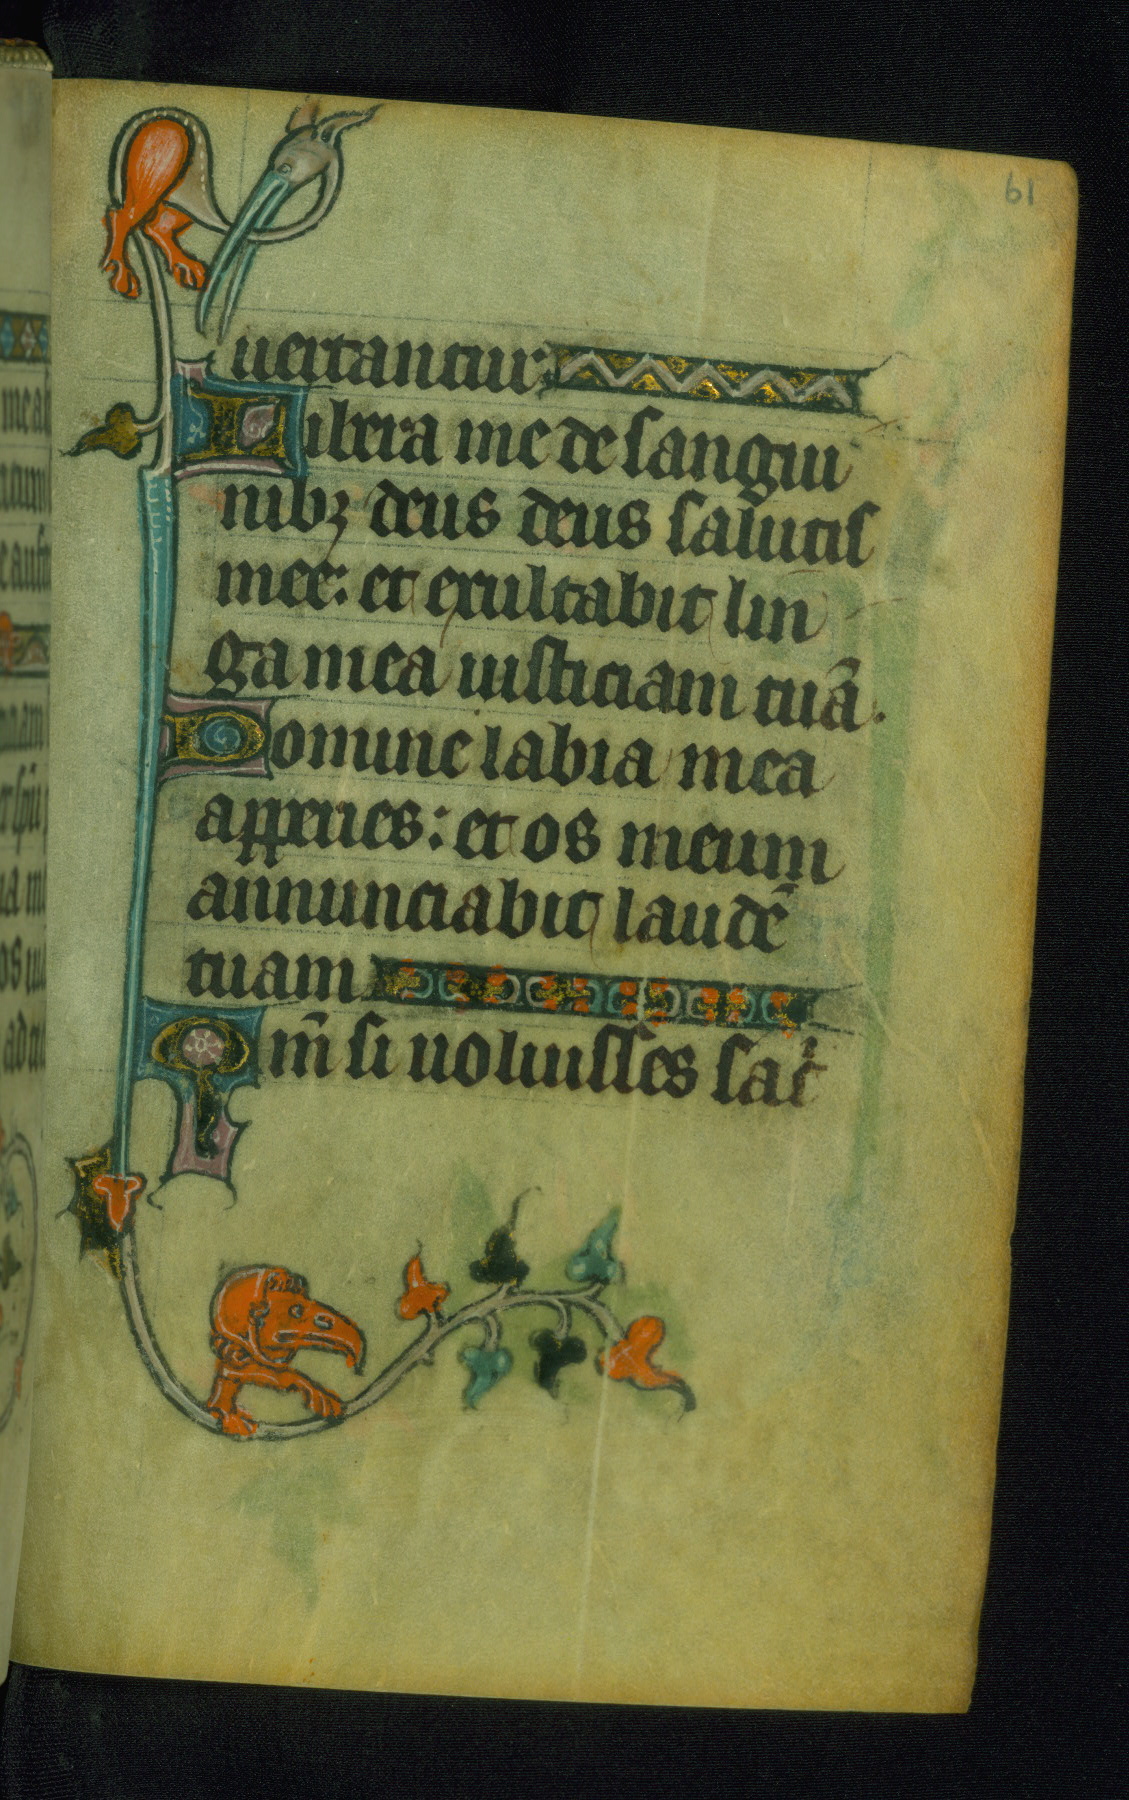 61
uertantur:
Libera me de sangui
nibꝫ deus deus salutis
mee: et exultabit lin
ga mea iusticiam tuā.
Domine labia mea
apperies: et os meum
annunciabit laudē
tuam
Qm̄ si uoluisses sac̄